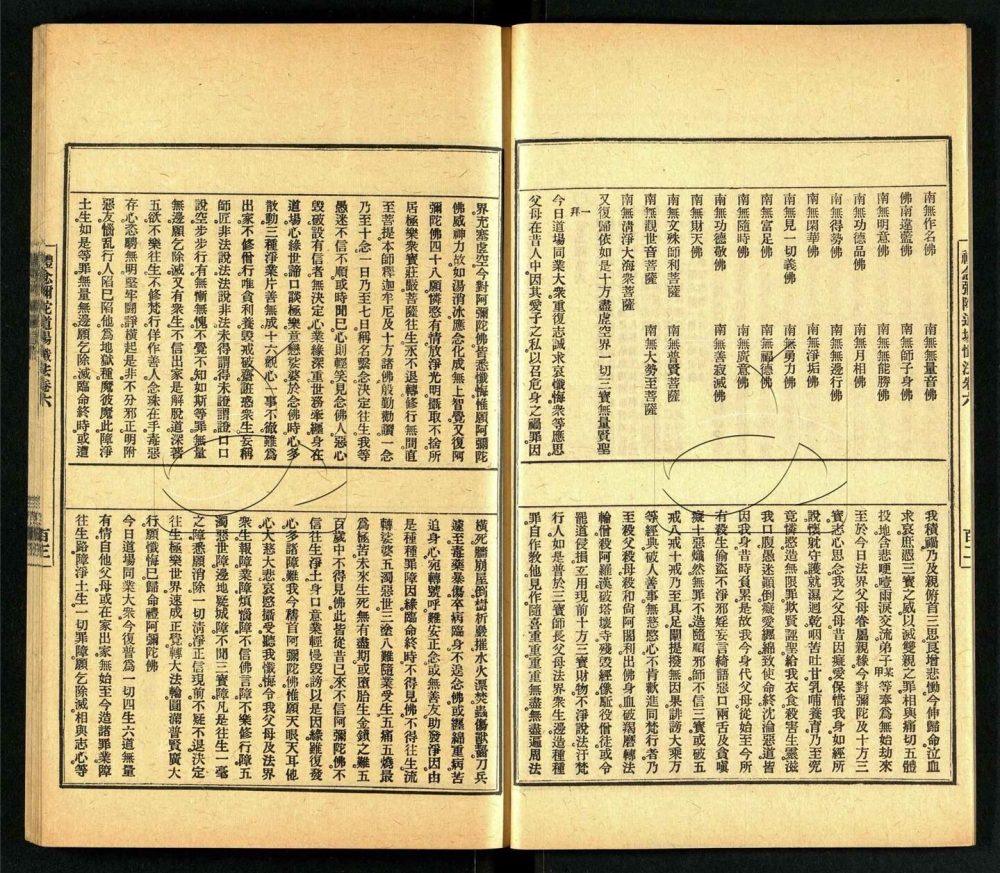 禮念彌陀道場懺法卷六
南無作名佛 南無無量音佛
佛南違藍佛 南無師子身佛
南無明意佛 南無無能勝佛
南無功德品佛 南無月相佛
南無得勢佛 南無無邊行佛
南無閑華佛 南無淨垢佛
南無見一切義佛 南無勇力佛
南無富足佛 南無福德佛
南無隨時佛 南無廣意佛
南無功德敬佛 南無善寂滅佛
南無財天佛
南無文殊師利菩薩 南無普賢菩薩
南無觀世音菩薩 南無大勢至菩薩
南無清淨大海衆菩薩
又復歸依如是十方盡虛空界一切三寶無量賢聖
一拜
今日道場同業大衆重復志誠求哀懺悔衆等應思
父母在昔人中因其愛子之私以召危身之禍罪因
百二
我積禍乃及親俯首三思良增悲慟今伸歸命泣血
求哀庶憑三寶之威以滅雙親之罪相與痛切五體
投地合悲哽噎雨淚交流弟子某甲等奉為無始劫來
至於今日法界父母眷屬親緣今對彌陀及十方三
寶志心思念我之父母昔因癡愛保惜我身如經所
說懷妊守護就濕迴乾咽苦吐甘乳哺養育乃至兇
竟憐慜造無限罪欺賢誑聖給我衣食殺害生靈滋
我口腹愚迷顛倒癡愛纏綿致使命終沈淪惡道皆
因我身昔時負累是故我今身代父母從始至今所
有殺生偷盜不淨邪婬妄言綺語惡口兩舌及貪嗔
癡十惡熾然無罪不造隨順邪師不信三寶或破五
戒八戒十戒乃至具足闡提撥無因果誹謗大乘方
等經典破人善事無慈慜心不肯歡喜進同梵行者乃
至殺父殺母殺和尚阿闍利出佛身血破羯磨轉法
輪僧殺阿羅漢破塔壞寺殘毀經像驅役僧徒或令
罷道侵損互用現前十方三寶財物不淨說法汙梵
行人如是普於三寶師長父母法界衆生邊造種種
罪自作教他見作隨喜重重重重無盡無盡遍周法
界充塞虛空今對阿彌陀佛皆悉懺悔惟願阿彌陀
佛威神力故如湯消冰應念化成無上智覺又復阿
彌陀佛四十八願憐慜有情放淨光明攝取不捨所
居極樂衆寶莊嚴菩薩往生永不退轉修行無間直
至菩提本師釋迦牟尼及十方諸佛殷勤勸讚一念
乃至十念一日乃至七日稱名繫念決定往生我等
愚迷不信不順或時聞已心則輕笑見念佛人惡心
毀破設有信者無決定心業緣深重世務牽纏身在
道場心緣世諦口談極樂意戀娑婆於念佛時心多
散動三種淨業片善無成十六觀心一事不徹雖為
出家不修僧行唯貪利養毀戒破齋誑惑衆生妄稱
師匠非法說法法說非法未得謂得未證謂證口口
說空步步行有無慚無愧不覺不知如斯等罪無量
無邊願乞除滅又有衆生不信出家是解脫道深著
五欲不樂往生不修梵行佯作善人念珠在手毒惡
存心悉騁無明堅牢鬪諍橫起是非不分邪正明附
惡友惱亂行人陷已陷他為地獄種魔彼魔此障淨
土生如是等罪無量無邊願乞除滅臨命終時或遭
橫死牆崩屋倒樹析巖摧水火漂焚蟲傷獸齧刀兵
遽至毒藥暴傷卒病臨身不遑念佛或纏綿重病苦
迫身心宛轉號呼難安正念或無善友助發淨因由
是種種罪障因緣臨命終時不得見佛不得往生流
轉娑婆五濁惡世三塗八難隨業受生五痛五燒最
為極苦未來生死無有盡期或墮胎生金鎖之難五
百歲中不得見佛此皆從昔已來不信阿彌陀佛不
信往生淨土身口意業輕慢毀謗以是因緣雖復發
心多諸障難我今稽首阿彌陀佛惟願天眼天耳他
心大慈大悲哀慜攝受聽我懺悔令我父母及法界
衆生報障業障煩惱障不信佛言障不樂修行障五
濁惡世障邊地疑城障不聞三寶障凡是往生一毫
之障悉願消除一切清淨正信現前不疑不退決定
往生極樂世界速成正覺轉大法輪圓滿普賢廣大
行願懺悔已歸命禮阿彌陀佛
今日道場同業大衆今復普為一切四生六道無量
有情自他父母或在家出家無始至今造諸罪業障
往生路障淨土生一切罪障願乞除滅相與志心等
禮念彌陀道場懺法卷六
百三